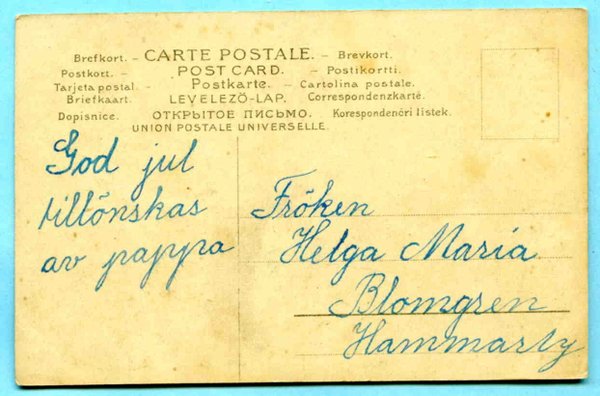 Brefkort. – CARTE POSTALE. – Brevkort.
Postkort. – POST CARD. – Postikortti.
Tarjeta postal. – Postkarte. – Cartolina postale.
Briefkaart. LEVELEZŐ-LAP. Correspondenzkarte.
Dopisnice. ОТКРЫТОЕ ПИСЬМО. Korespondenční lístek.
UNION POSTALE UNIVERSELLE.
God jul
tillönskas
av pappa
Fröken
Helga Maria
Blomgren
Hammarby